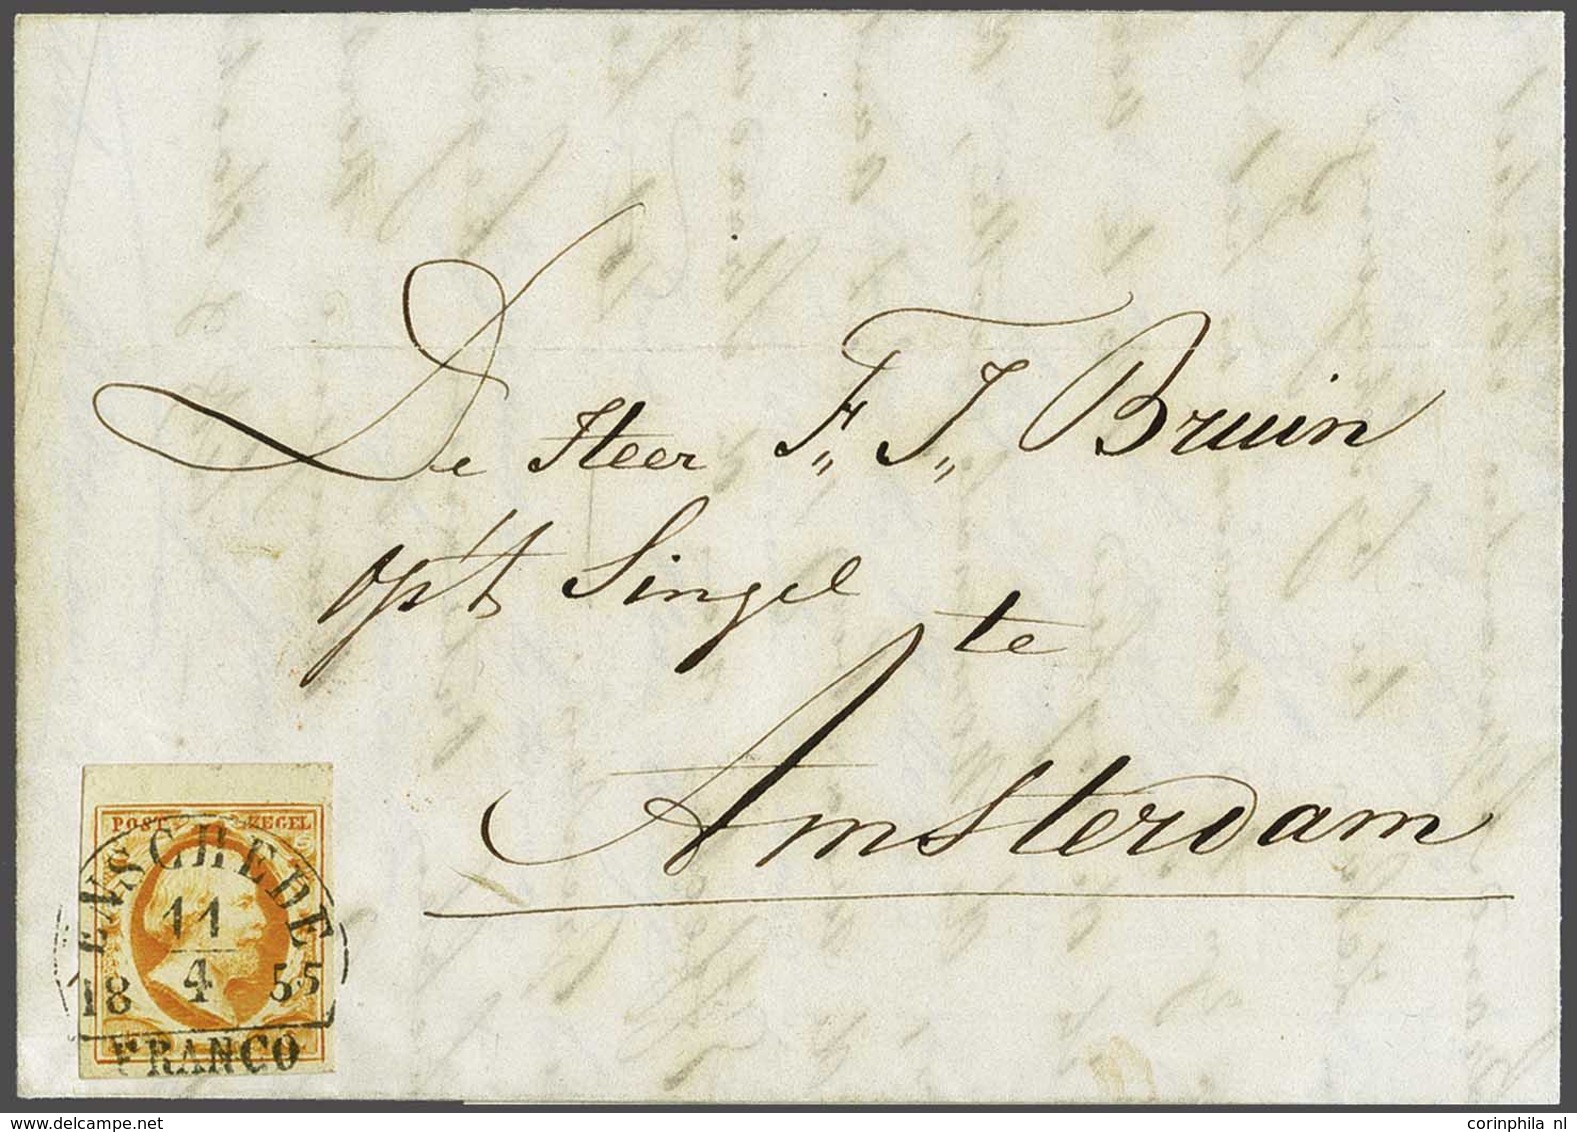 De Heer F,, J,, Bruin
op't Singel
te
Amsterdam
POST ZEGEL
ENSCHEDE
11
18 4 55
FRANCO
delcampe.net
corinphila nl